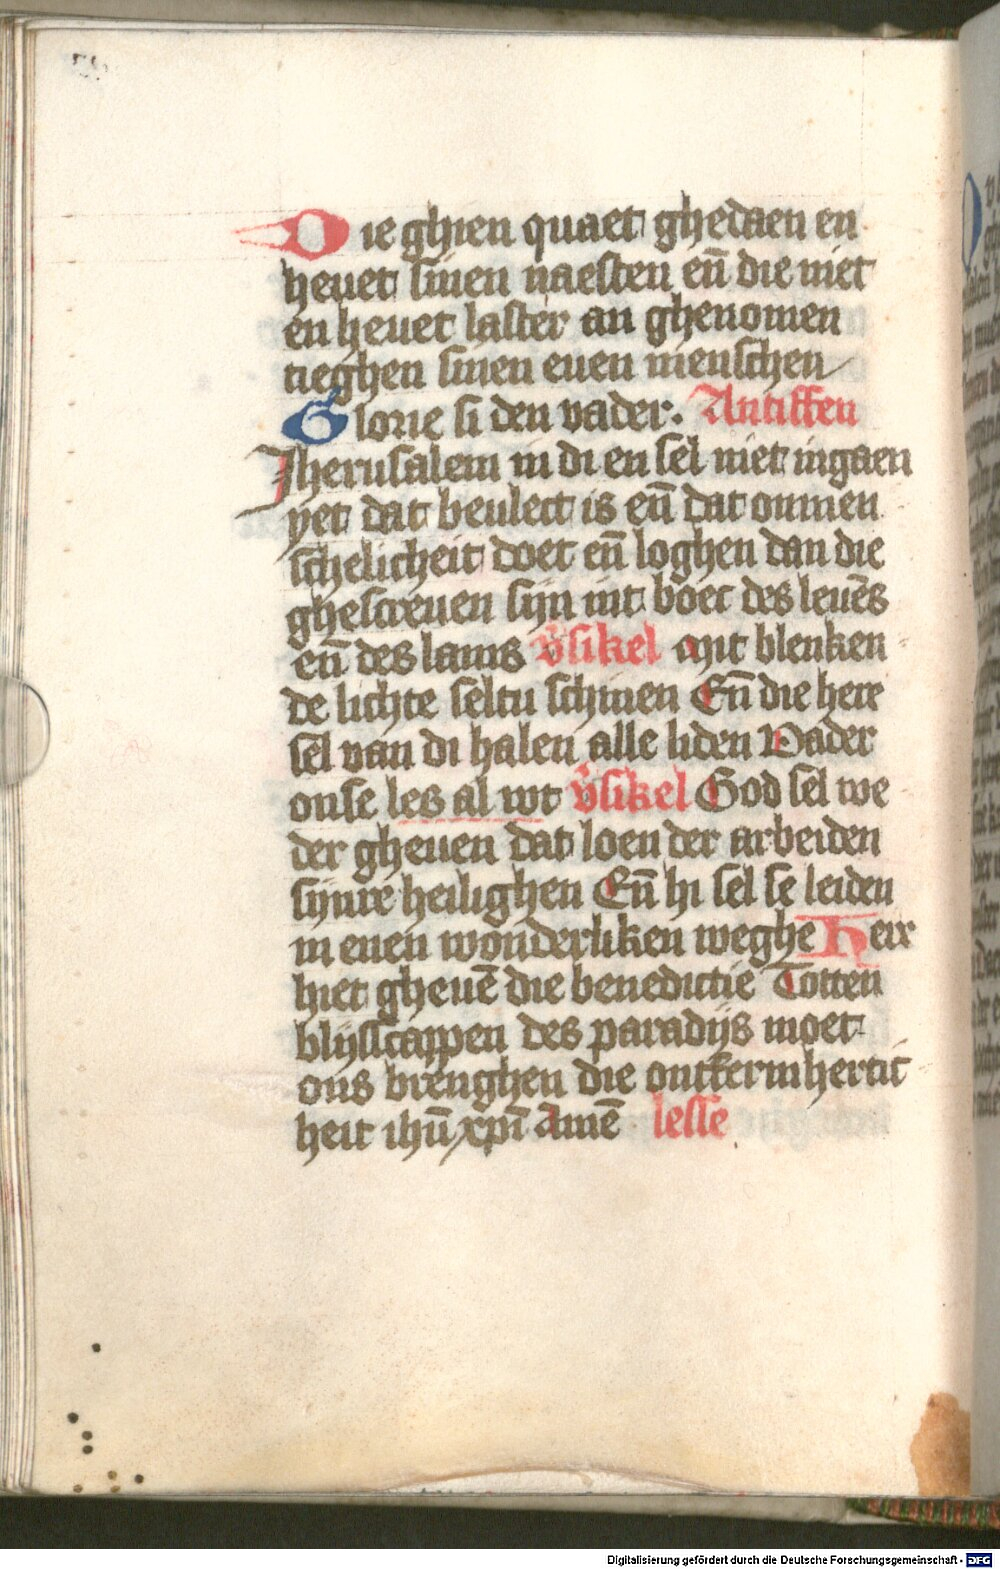 Die ghien quaet ghedaen en
heuet sinen naesten eñ die niet
en heuet laster an ghenomen
tieghen sinen euen menschen
Glorie si den vader. Antiffen
Jherusalem in di en sel niet ingaen
yet dat beulect is eñ dat onmen
schelicheit doet eñ loghen dan die
ghescreuen sijn int boec des leuēs
eñ des lams v̄sikel Mit blenken
de lichte seltu schinen Eñ die here
sel van di halen alle liden Vader
onse les al wt v̄sikel God sel we
der gheuen dat loen der arbeiden
sijnre heilighen Eñ hi sel se leiden
in enen wonderliken weghe Herr
hiet gheuē die benedictie Totten
blijscappen des paradijs moet
ons brenghen die ontfermhertic
heit ihū xpī amē lesse
Digitalisierung gefördert durch die Deutsche Forschungsgemeinschaft - DFG